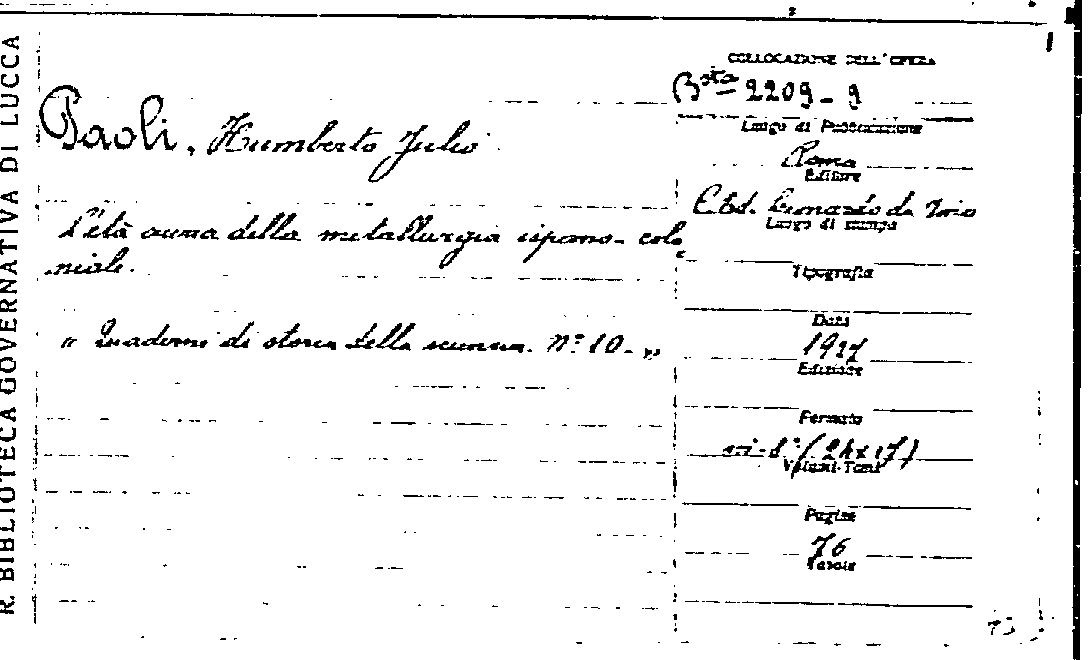 R. BIBLIOTECA GOVERNATIVA DI LUCCA
Paoli, Humberto Julio
L'età aurea della metallurgia ispano-colo
niale.
" Quaderni di storia della scienza. N° 10. "
COLLOCAZIONE DELL'OPERA
Bsta 2209-9
Luogo di Pubblicazione
Roma
Editore
Leonardo da Vinci
Luogo di stampa
Tipografia
Data
1927
Edizione
Formato
in-8° (24x17)
Volumi-Tomi
Pagine
76
Tavole